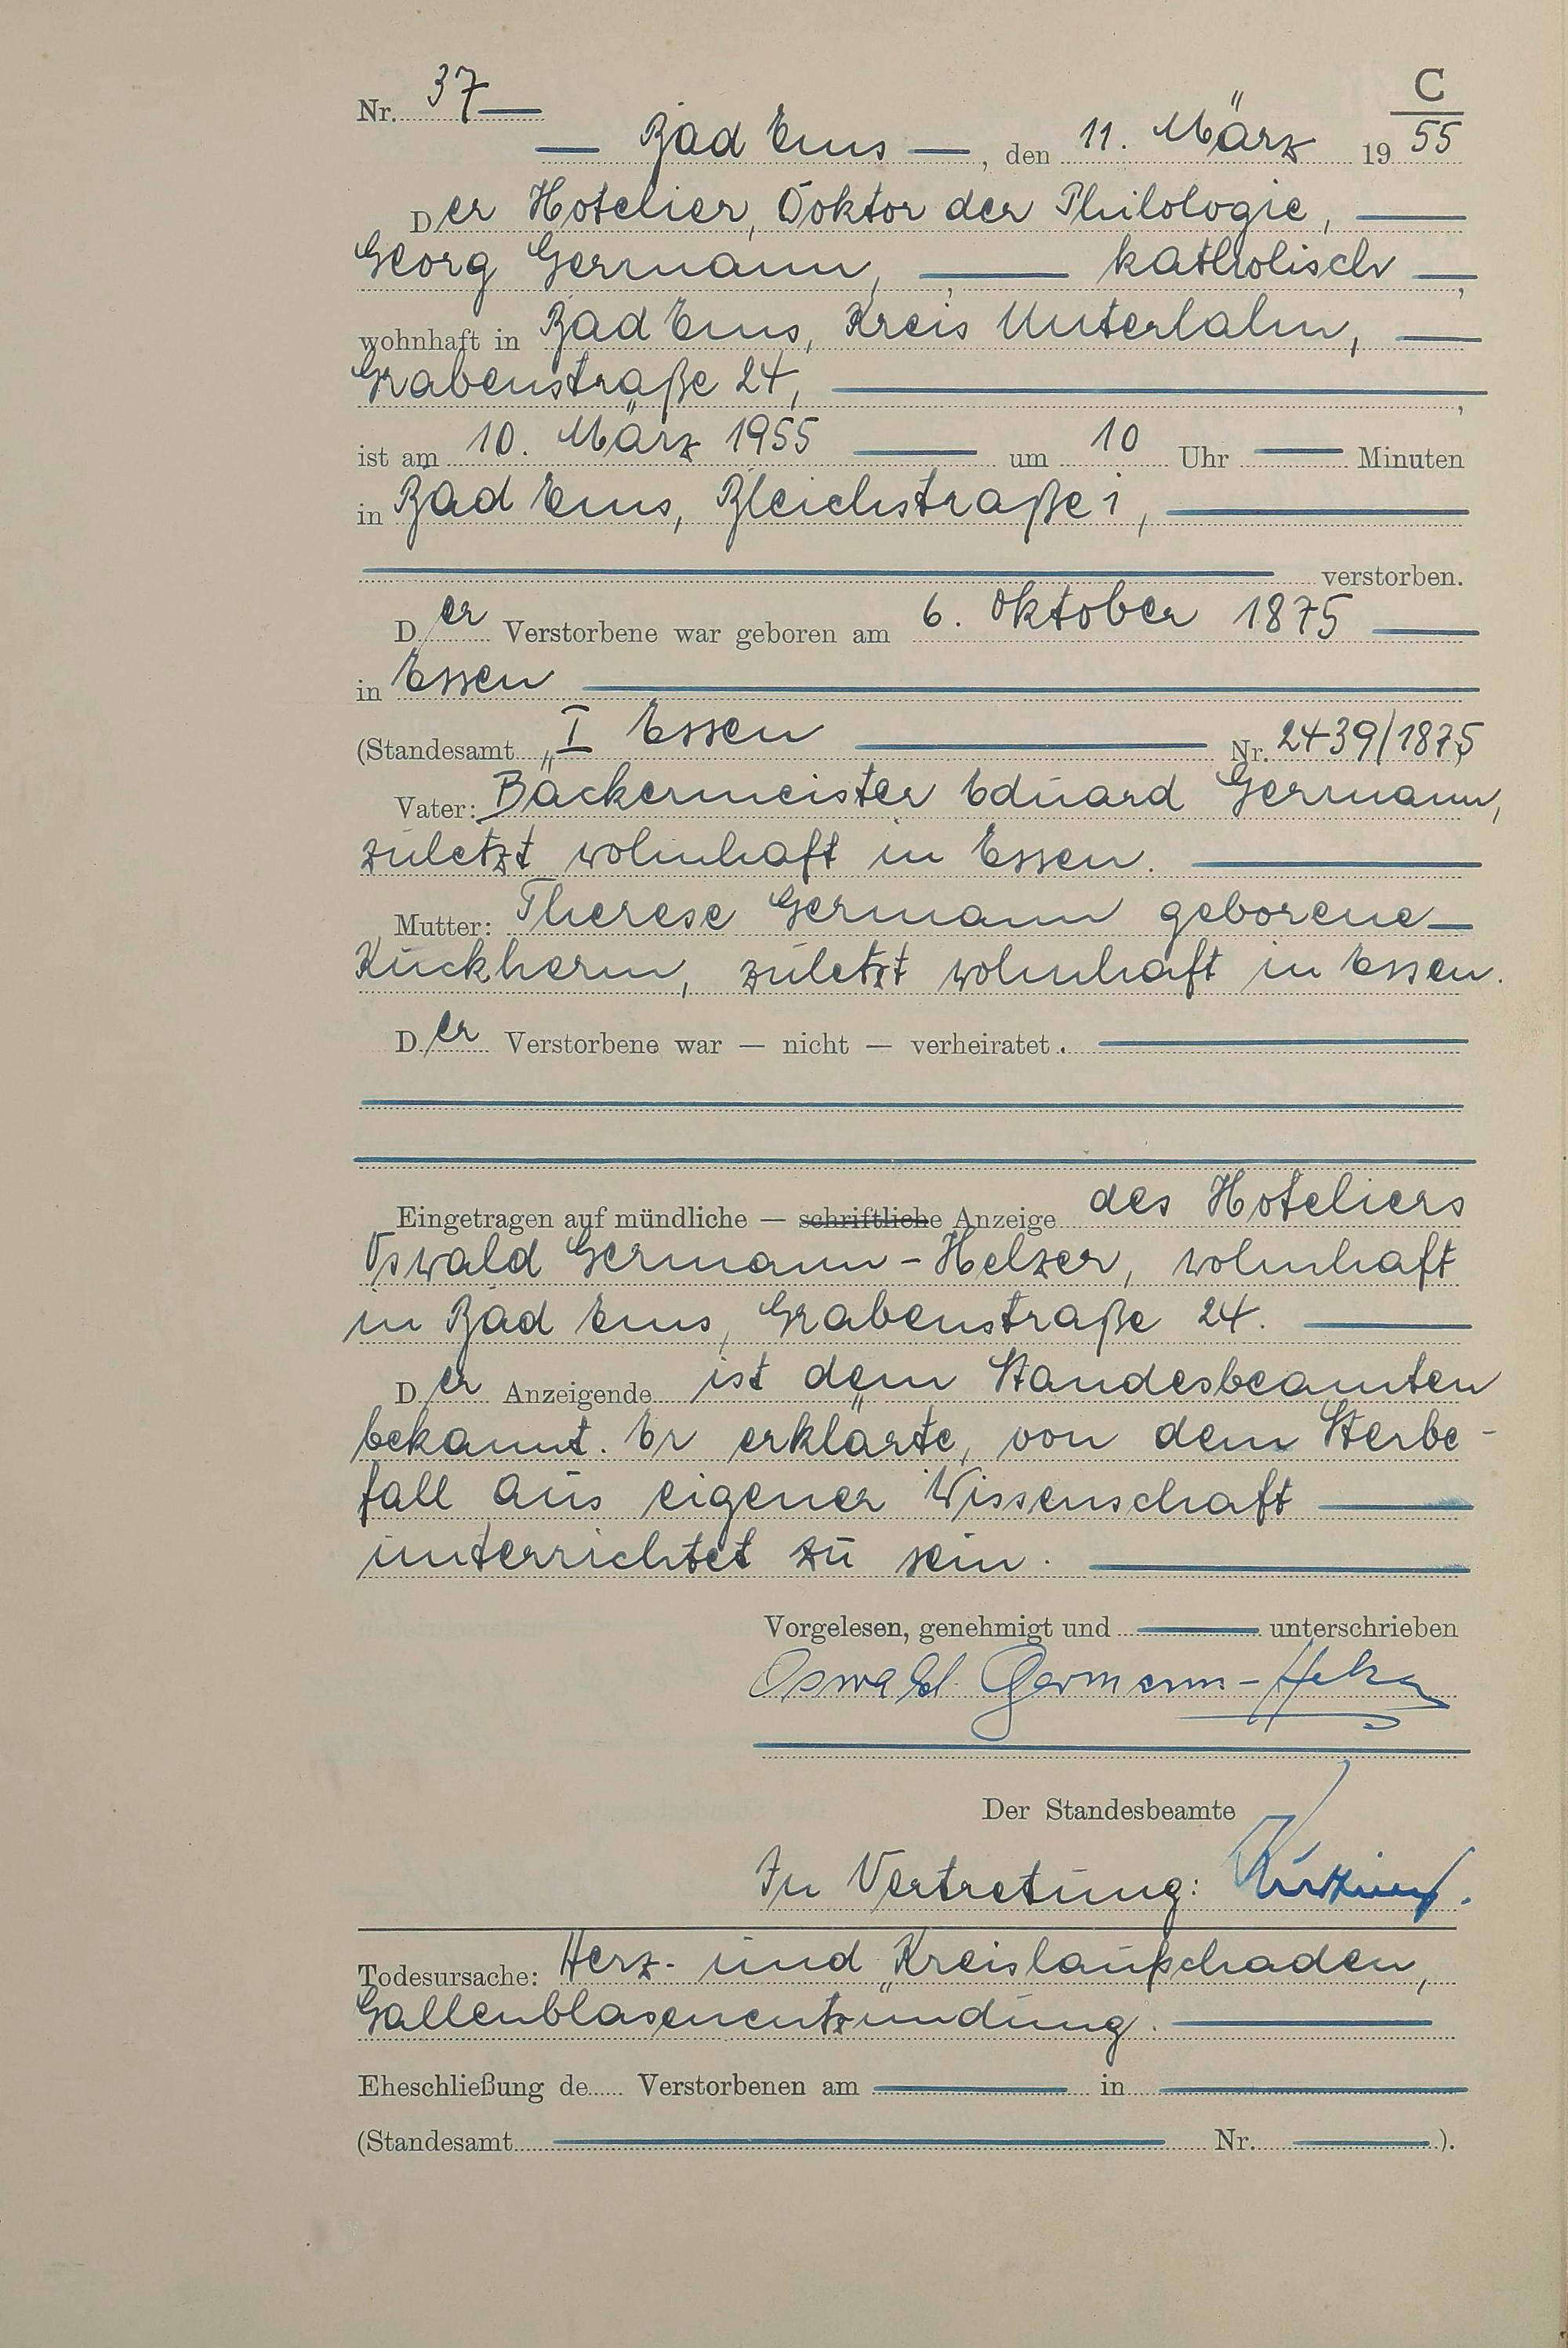 C
Nr. 37
Bad Ems, den 11. März 19 55
Der Hotelier, Doktor der Philologie,
Georg Germann, katholisch,
wohnhaft in Bad Ems, Kreis Unterlahn,
Grabenstraße 24,
ist am 10. März 1955 um 10 Uhr Minuten
in Bad Ems, Bleichstraße 1,
verstorben.
Der Verstorbene war geboren am 6. Oktober 1875
in Essen
(Standesamt I Essen Nr. 2439/1875
Vater: Bäckermeister Eduard Germann,
zuletzt wohnhaft in Essen.
Mutter: Therese Germann geborene
Kuckherm, zuletzt wohnhaft in Essen.
Der Verstorbene war — nicht — verheiratet.
Eingetragen auf mündliche — schriftliche Anzeige des Hoteliers
Oswald Germann-Helzer, wohnhaft
in Bad Ems, Grabenstraße 24.
Der Anzeigende ist dem Standesbeamten
bekannt. Er erklärte, von dem Sterbe-
fall aus eigener Wissenschaft
unterrichtet zu sein.
Vorgelesen, genehmigt und unterschrieben
Oswald Germann-Helzer
Der Standesbeamte
In Vertretung:
Todesursache: Herz- und Kreislaufschaden,
Gallenblasenentzündung.
Eheschließung de Verstorbenen am in
(Standesamt Nr. ).